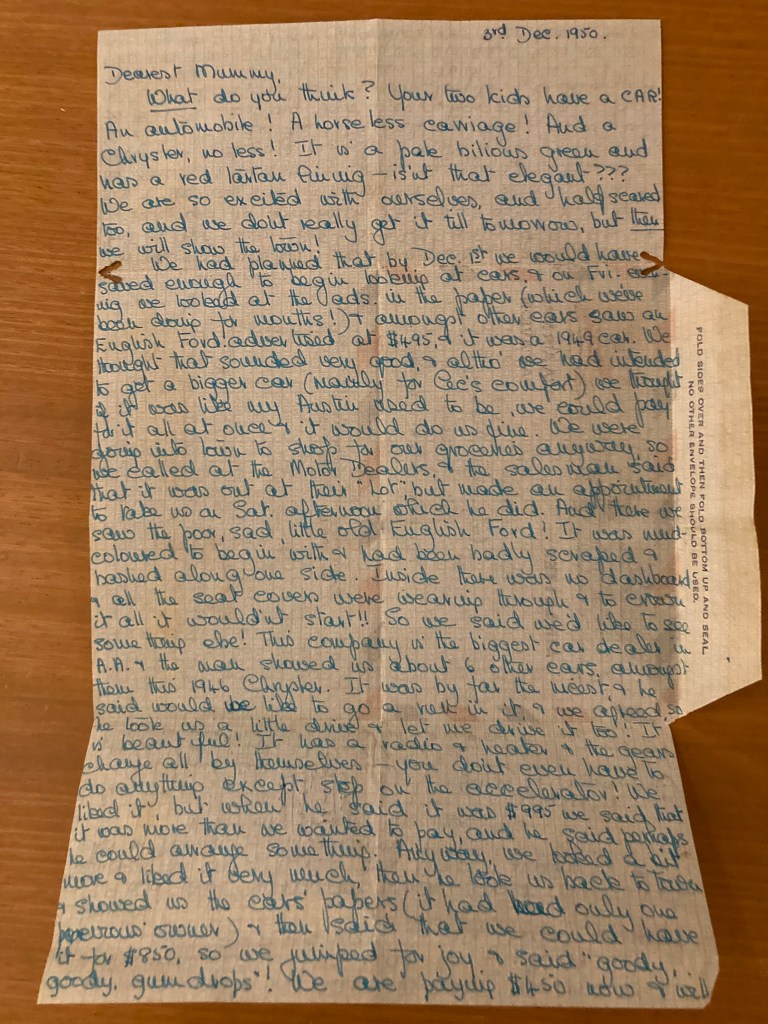 3rd Dec. 1950.
Dearest Mummy,
What do you think? Your two kids have a CAR!
An automobile! A horseless carriage! And a
Chrysler, no less! It is a pale bilious green and
has a red tartan lining – isn't that elegant???
We are so excited with ourselves, and half scared
too, and we don't really get it till tomorrow, but then
we will show the town!
We had planned that by Dec. 1st we would have
saved enough to begin looking at cars, & on Fri. even-
ing we looked at the ads. in the paper (which we've
been doing for months!) & amongst other cars saw an
English Ford advertised at $495, & it was a 1949 car. We
thought that sounded very good, & altho' we had intended
to get a bigger car (mainly for Cec's comfort) we thought
if it was like my Austin used to be, we could pay
for it all at once & it would do us fine. We were
going into town to shop for our groceries anyway, so
we called at the Motor Dealers, & the salesman said
that it was out at their "Lot", but made an appointment
to take us on Sat. afternoon which he did. And there we
saw the poor, sad, little old English Ford! It was mud-
coloured to begin with & had been badly scraped &
bashed along one side. Inside there was no dashboard
& all the seat covers were wearing through & to crown
it all it wouldn't start!! So we said we'd like to see
something else! This company is the biggest car dealer in
A.A. & the man showed us about 6 other cars, amongst
them this 1946 Chrysler. It was by far the nicest, & he
said would we like to go a ride in it, & we agreed, so
he took us a little drive & let me drive it too! It
is beautiful! It has a radio & heater & the gears
change all by themselves – you don't even have to
do anything except step on the accelerator! We
liked it, but when he said it was $995 we said that
it was more than we wanted to pay, and he said perhaps
he could arrange something. Anyway, we looked a bit
more & liked it very much, then he took us back to town
& showed us the cars' papers (it had had only one
previous owner) & then said that we could have
it for $850, so we jumped for joy & said "goody,
goody, gum drops"! We are paying $450 now & will
FOLD SIDES OVER AND THEN FOLD BOTTOM UP AND SEAL
NO OTHER ENVELOPE SHOULD BE USED.